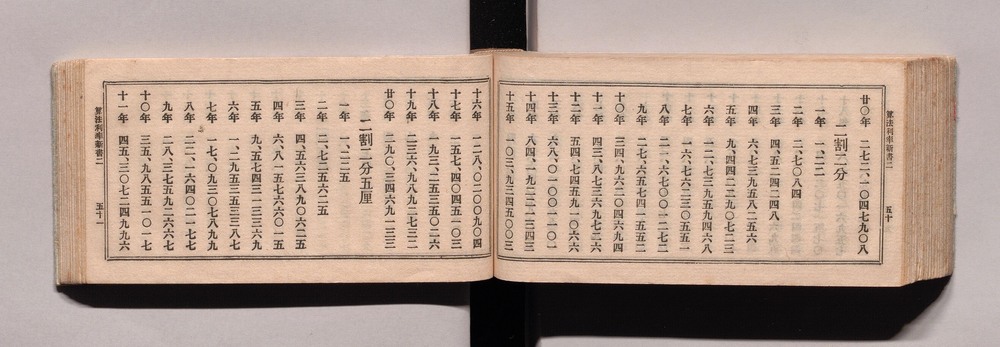 算法利率新書二 五十
廿〇年 二七二、一〇四七九〇八
二割二分
一年 一、二二
二年 二、七〇八四
三年 四、五二四二四八
四年 六、七三九五八二五六
五年 九、四四二二九〇七二三
六年 一二、七三九五九四六八
七年 一六、七六二三〇五五一
八年 二一、六七〇〇一二七二
九年 二七、六五七四一五五二
十〇年 三四、九六二〇四六九四
十一年 四三、八七三六九七二六
十二年 五四、七四五九一〇六六
十三年 六八、〇一〇〇一一〇一
十四年 八四、一九二二一三四三
十五年 一〇三、九三四五〇〇三
十六年 一二八、〇二〇〇九〇四
十七年 一五七、四〇四五一〇三
十八年 一九三、二五三五〇二六
十九年 二三六、九八九二七三二
廿〇年 二九〇、三四六九一三三
二割二分五厘
一年 一、二二五
二年 二、七二五六二五
三年 四、五六三八九〇六二五
四年 六、八一五七六六〇一五
五年 九、五七四三一三三六九
六年 一二、九五三五三三八七
七年 一七、〇九三〇七八九九
八年 二二、一六四〇二一七七
九年 二八、三七五九二六六七
十〇年 三五、九八五五一〇一七
十一年 四五、三〇七二四九九六
算法利率新書二 五十一